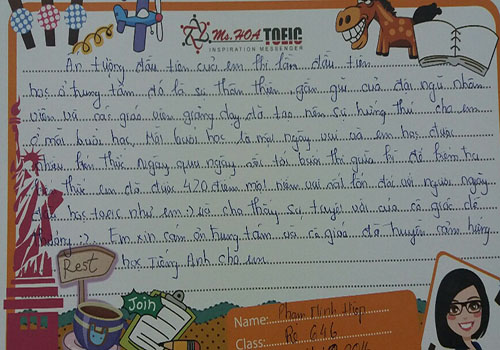 Ms. HOA TOEIC
INSPIRATION MESSENGER
Ấn tượng đầu tiên của em khi lần đầu tiên
học ở trung tâm đó là sự thân thiện, gần gũi của đội ngũ nhân
viên và các giáo viên giảng dạy đã tạo nên sự hứng thú cho em
ở mỗi buổi học. Mỗi buổi học là một ngày vui và em học được
nhiều kiến thức ngày qua ngày rồi tới buổi thi giữa kì để kiểm tra
thức em đã được 420 điểm một niềm vui rất lớn đối với người ngày
học toeic như em :) và cho thấy sự tuyệt vời của cô giáo đã
:) Em xin cám ơn trung tâm và cô giáo đã truyền cảm hứng
học Tiếng Anh cho em
Rest
Join
Name: Phạm Minh
Class: Re 646